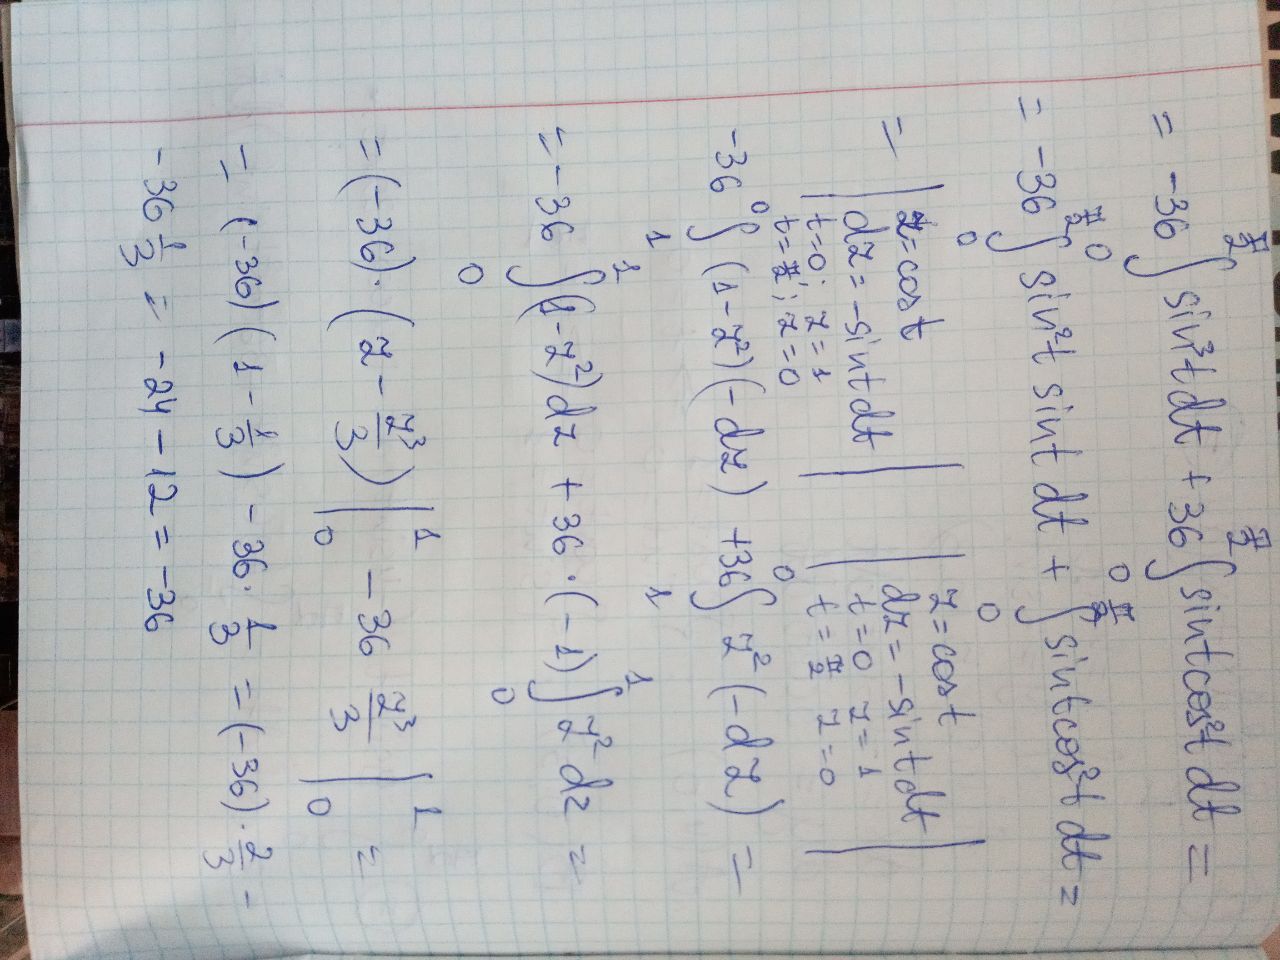 NEW YORK
= -36 ∫₀^{π/2} sin³t dt + 36 ∫₀^{π/2} sint cos²t dt =
= -36 ∫₀^{π/2} sin²t sint dt + ∫₀^{π/2} sint cos²t dt =
= | z = cos t | | z = cos t |
| dz = -sint dt | | dz = -sint dt |
| t=0; z=1 | | t=0 z=1 |
| t=π/2; z=0 | | t=π/2 z=0 |
-36 ∫₁⁰ (1-z²)(-dz) +36 ∫₁⁰ z² (-dz) =
= -36 ∫₀¹ (1-z²) dz + 36 · (-1) ∫₀¹ z² dz =
= (-36) · (z - z³/3) |₀¹ - 36 z³/3 |₀¹ =
= (-36) (1 - 1/3) - 36 · 1/3 = (-36) · 2/3 -
- 36 1/3 = -24 - 12 = -36